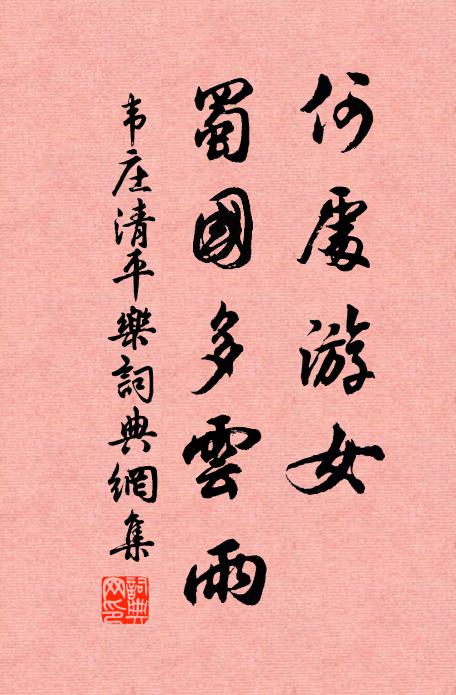 何處游女
蜀國多雲雨
韦庄清平樂詞典網集
詞典网印